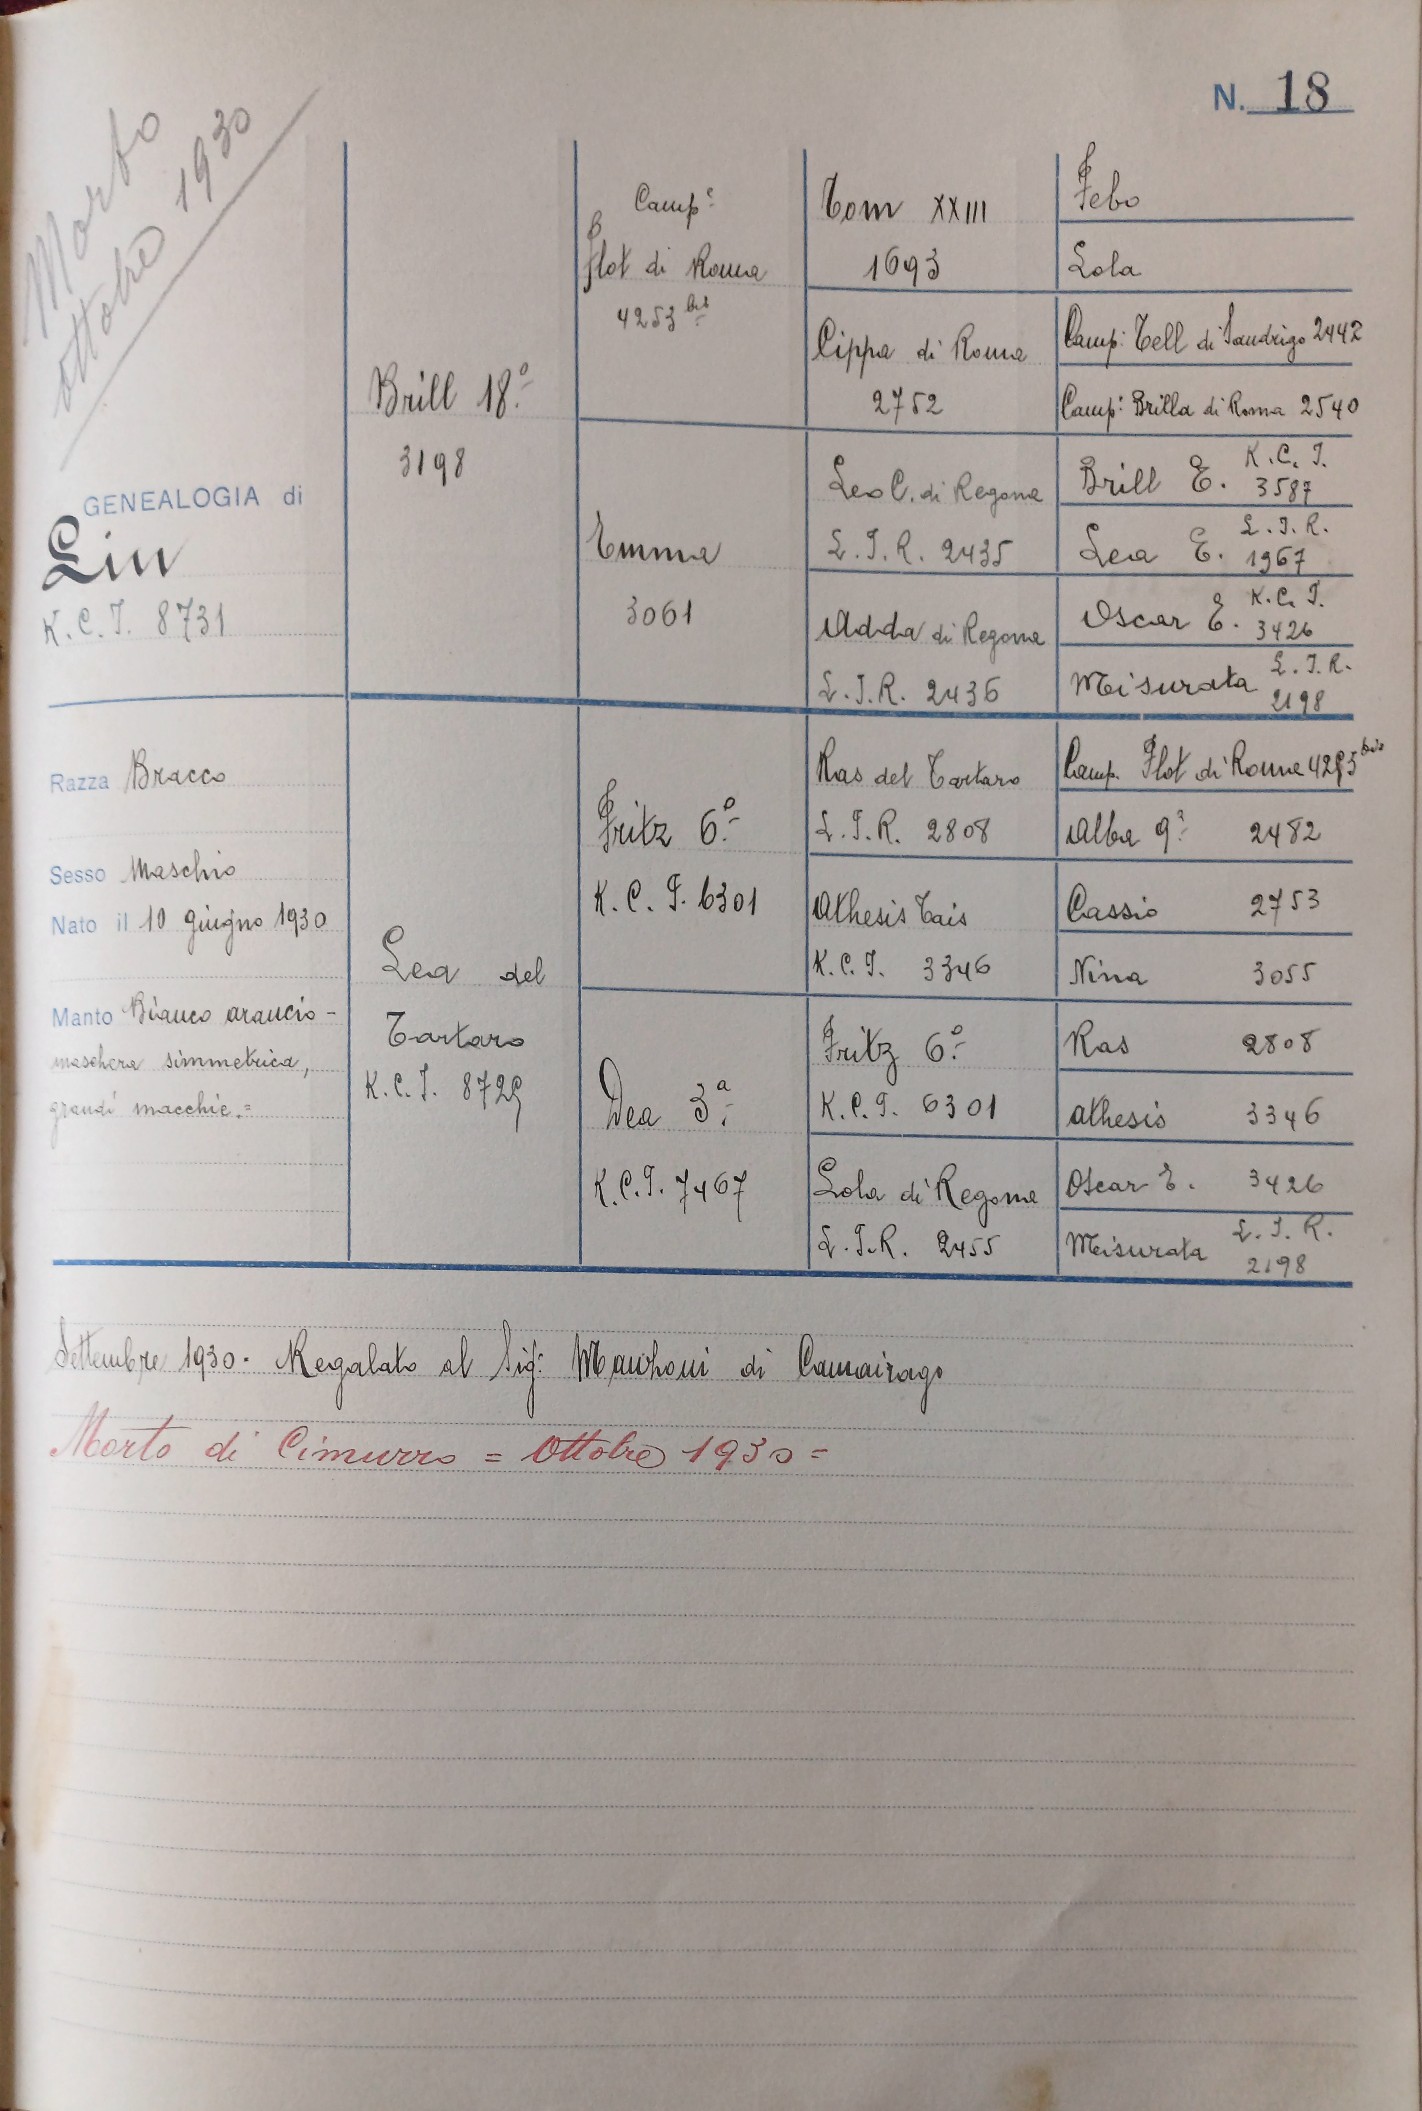 N. 18
Morto
ottobre 1930
GENEALOGIA di
Lin
K.C.I. 8731
Razza Bracco
Sesso Maschio
Nato il 10 giugno 1930
Manto Bianco arancio -
maschera simmetrica,
grandi macchie.=
Brill 18º
3198
Lea del
Tartaro
K.C.I. 8729
Campº
Flot di Roma
4253 bis
Emma
3061
Fritz 6º
K.C.I. 6301
Dea 3ª
K.C.I. 7467
Tom XXIII
1693
Cippa di Roma
2752
Leo C. di Regona
L.I.R. 2435
Adda di Regona
L.I.R. 2436
Ras del Tartaro
L.I.R. 2808
Athesis Tais
K.C.I. 3346
Fritz 6º
K.C.I. 6301
Lola di Regona
L.I.R. 2455
Febo
Lola
Camp: Tell di Sandrigo 2442
Camp: Brilla di Roma 2540
Brill E. K.C.I. 3587
Lea E. L.I.R. 1967
Oscar E. K.C.I. 3426
Misurata L.I.R. 2198
Camp. Flot di Roma 4253 bis
Alba 9ª 2482
Cassio 2753
Nina 3055
Ras 2808
Athesis 3346
Oscar E. 3426
Misurata L.I.R. 2198
Settembre 1930. Regalato al Sig: di Camairago
Morto di Cimurro = Ottobre 1930 =